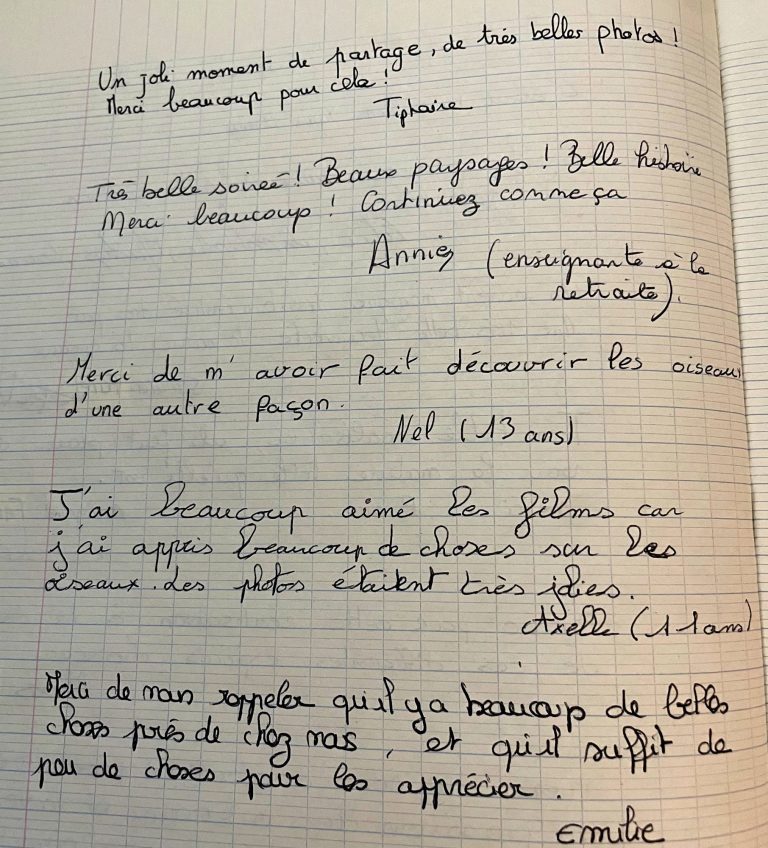 Un joli moment de partage, de très belles photos !
Merci beaucoup pour cela !
Tiphaine
Très belle soireé ! Beaux paysages ! Belle histoire
Merci beaucoup ! Continuez comme ça
Annie (enseignante à la
retraite).
Merci de m'avoir fait découvrir les oiseaux
d'une autre façon.
Nel (13 ans)
J'ai beaucoup aimé les films car
j'ai appris beaucoup de choses sur les
oiseaux. Les photos étaient très jolies.
Axelle (11 ans)
Merci de nous rappeler qu'il y a beaucoup de belles
choses près de chez nous, et qu'il suffit de
peu de choses pour les apprécier.
Emilie